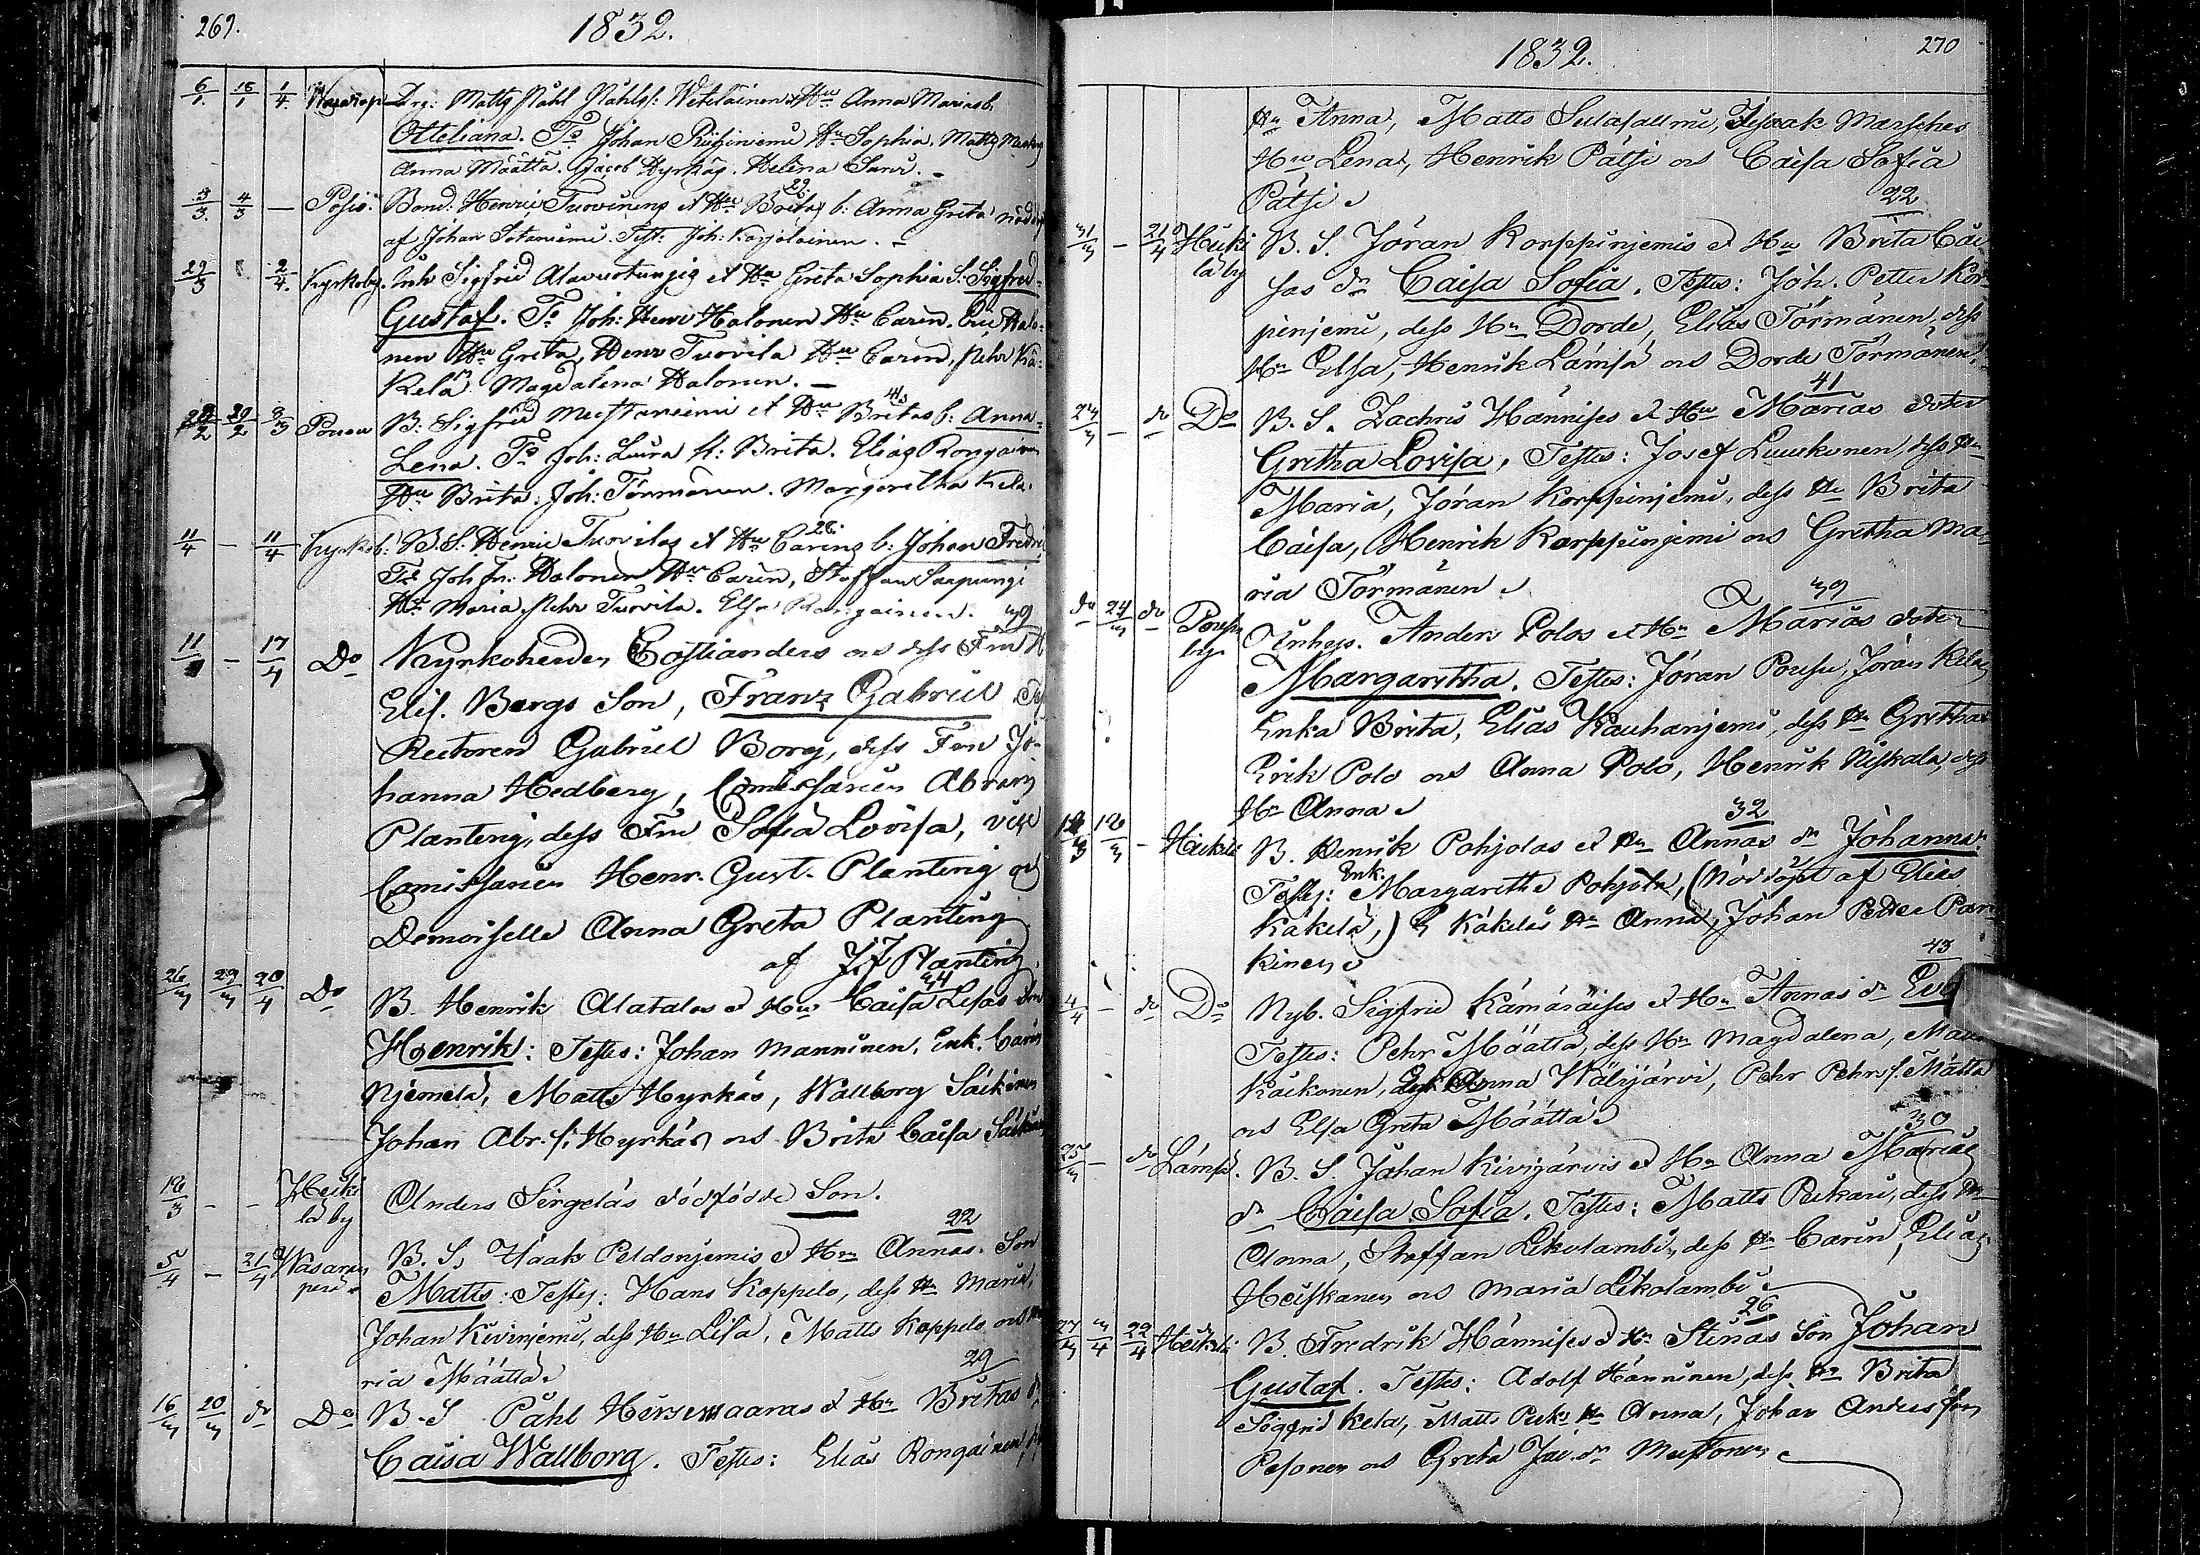 269.
1832.
6/1. 18/1 1/4. Drg: Matts Påhl Påhls: Wetelainen et Hu Anna Marias b.
Otteliana. Ts Johan Hu Sophia. Matts
Anna Määttä. Jacob Hyrkäs. Helena
3/3 4/3 — Posio: Bond: Henric Turvinens et Hu Britas b: Anna Greta nöddöpt
29.
af Johan Sotaniemi. Test: Joh: Karjalainen. —
29/3 2/4. Kyrkoby. Inh Sigfrid et Hu Greta Sophia S: Sigfred
Gustaf. Ts Joh: Henr Halonen Hu Caren. Eric Halo-
nen Hu Greta, Henr Tuovila Hu Caren, Pehr Kä-
kelä. Magdalena Halonen. —
29/2 9/3 Posion B: Sigfrid Mustaniemi et Hu Britas b: Anna
Lena. Ts Joh: Lura H: Brita. Elias Rongainen
Hu Brita. Joh: Törmänen. Margaretha Kela.
28.
11/4 — 11/4 Kyrkob: B. S. Henric Tuovilas et Hu Carins b: Johan Fredric
Ts Joh Halonen Hu Caren, Staffan Saapungi
Hu Maria, Pehr Tuovila. Elsa Rongainen.
39
11 — 17/4 Do Kyrkoherden Costianders os dess Fru
Elis. Bergs Son, Franz Gabriel
Rectoren Gabriel Borg, dess Fru Jo-
hanna Hedberg, Comissarien Abram
Planting, dess Fru Sofia Lovisa, vice
Comissarien Henr. Gust. Planting os
Demoiselle Anna Greta Planting
af J. J. Planting.
34
26/3 29/3 20/4 Do B. Henrik Alatalos et Hu Caisa Lisas son
Henrik: Testes: Johan Manninen, Enk. Carin
Njemelä, Matts Hyrkäs, Wallborg Säikinen
Johan Abr. s: Hyrkäs os Brita Caisa
16/3 — — Heiki
lä by Anders Sirgeläs dödfödde Son.
22
5/4 — 21/4 Wasaran
perä B. S. Isaak Peldonjemis et Hu Annas Son
Matts: Testes: Hans Koppelo, dess Hu Maria,
Johan Kivinjemi, dess Hu Lisa, Matts Koppelo os Ma-
ria Määttä
29
16/3 20/3 do Do B. S. Påhl Hirsimaaras et Hu Britas
Caisa Wallborg. Testes: Elias Rongainen,
1832.
270
Hu Anna, Matts Sulasallmi, Isaak Marsches
Hu Lena, Henrik Pätsi os Caisa Sofia
Pätsi
22
31/3 — 21/4 Heiki
lä by B. S. Jöran Korppinjemis et Hu Brita Cai
sas dr Caisa Sofia. Testes: Joh. Petter Kor-
pinjemi, dess Hu Dorde, Elias Törmänen, dess
Hu Elsa, Henrik Lämsä os Dorde Törmänen
41
24/3 — do Do B. S. Zachris Hännises et Hu Marias doter
Gretha Lovisa, Testes: Josef Luukunen, dess Hu
Maria, Jöran Korppinjemi, dess Hu Brita
Caisa, Henrik Korppinjemi os Gretha Ma-
ria Törmänen
39
do 24/3 do Inhys. Anders Polos et Hu Marias doter
Margaretha. Testes: Jöran Poussu, Jöran Kela,
Enka Brita, Elias Kauhanjemi, dess Hu Gretha
Erik Polo os Anna Polo, Henrik Niskala, dess
Hu Anna
32
12/3 16/3 — Heikilä B. Henrik Pohjolas et Hu Annas dr Johanna.
Testes: Enk. Margaretha Pohjola, (Nöddöpt af Elias
Käkelä,) E Käkeläs Hu Anna, Johan Petter Par-
kinen
43
4/4 — do Do Nyb. Sigfrid Kämäräises et Hu Annas dr
Testes: Pehr Määttä, dess Hu Magdalena,
Kaikonen, Anna Wälijärvi, Pehr Pehrs. Määttä
os Elsa Greta Määttä
30
25/3 — do Lämsä. B. S. Johan Kivijärvis et Hu Anna Marias
dr Caisa Sofia. Testes: Matts Peckari, dess Hu
Anna, Staffan Lekolambi, dess Hu Carin, Elias
Heiskanen os Maria Lekolambi
26
27/3 3/4 22/4 Heikilä B. Fredrik Hännises et Hu Stinas Son Johan
Gustaf. Testes: Adolf Hänninen, dess Hu Brita
Sigfrid Kela, Matts Hu Anna, Johan Andersson
Pesonen os Greta dr Mustonen